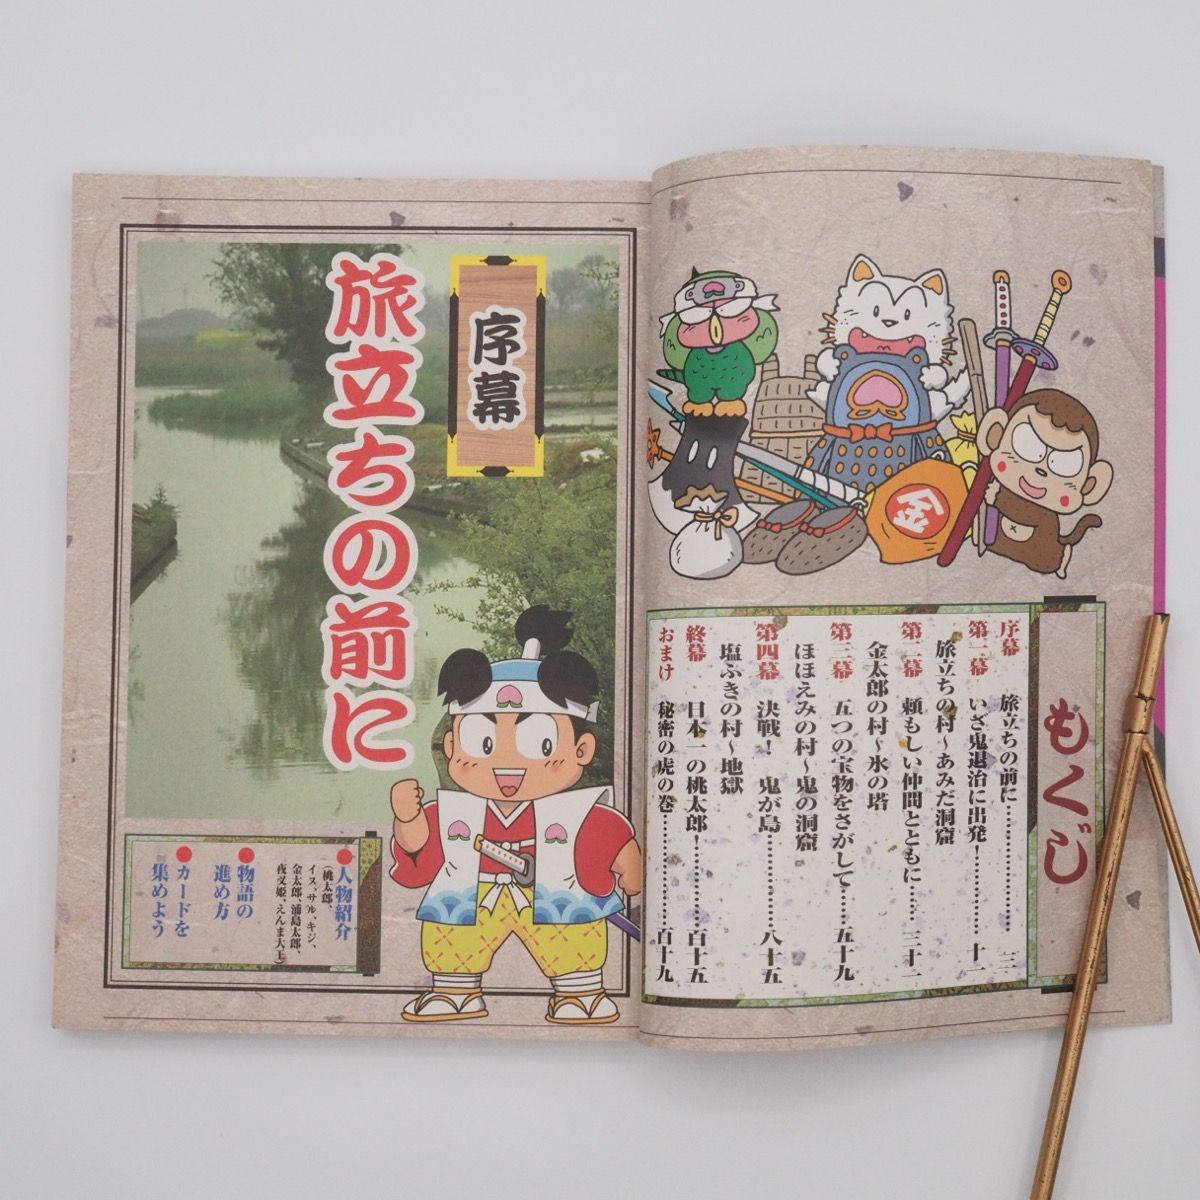 金
もくじ
序幕 旅立ちの前に…………………三
第一幕 いざ鬼退治に出発!…………十一
旅立ちの村~あみだ洞窟
第二幕 頼もしい仲間とともに……三十一
金太郎の村~氷の塔
第三幕 五つの宝物をさがして……五十九
ほほえみの村~鬼の洞窟
第四幕 決戦! 鬼が島……………八十五
塩ふきの村~地獄
終幕 日本一の桃太郎!…………百十五
おまけ 秘密の虎の巻………………百十九
序幕
旅立ちの前に
●人物紹介
(桃太郎、
イヌ、サル、キジ、
金太郎、浦島太郎、
夜叉姫、えんま大王)
●物語の
進め方
●カードを
集めよう